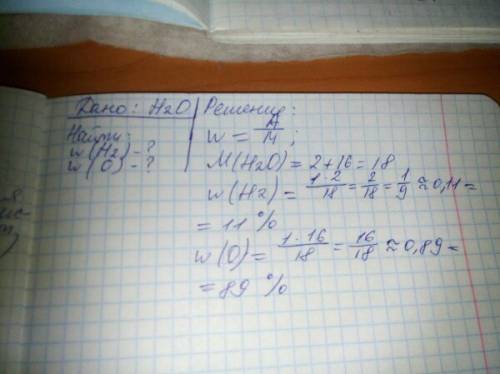 Дано: H2O
Найти:
w(H2) - ?
w(O) - ?
Решение:
w = A/M;
M(H2O) = 2+16 = 18
w(H2) = 1·2/18 = 2/18 = 1/9 ≈ 0,11 =
= 11 %
w(O) = 1·16/18 = 16/18 ≈ 0,89 =
= 89 %